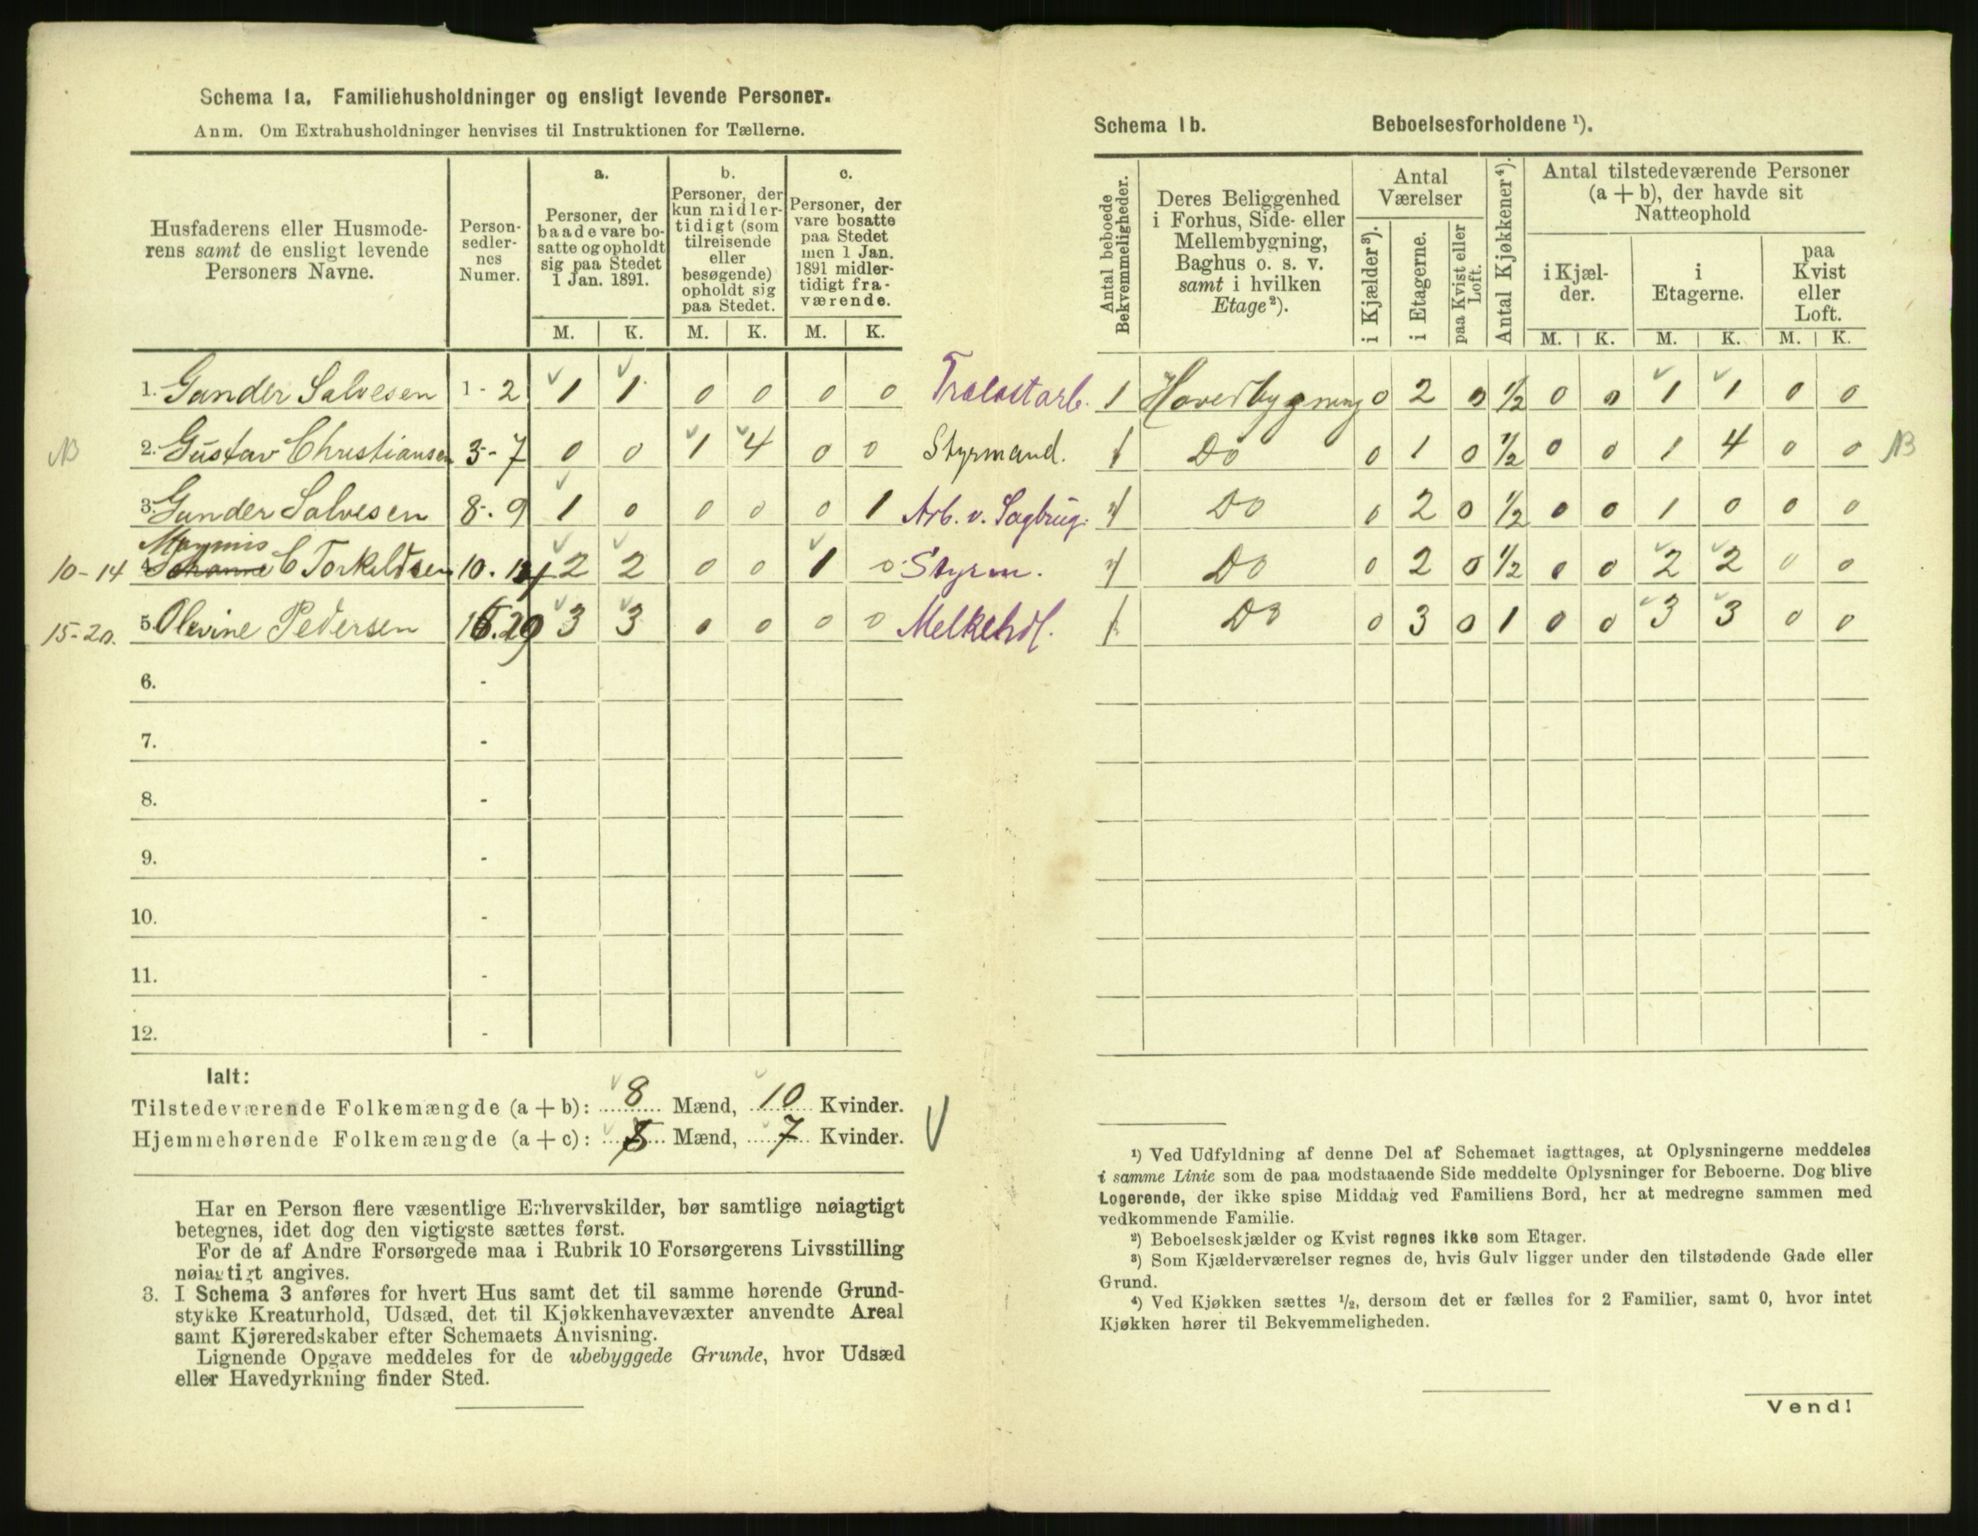 Schema 1a. Familiehusholdninger og ensligt levende Personer.
Anm. Om Extrahusholdninger henvises til Instruktionen for Tællerne.
Husfaderens eller Husmoderens samt de ensligt levende Personers Navne. | Personsedlernes Numer. | a. Personer, der baade vare bosatte og opholdt sig paa Stedet 1 Jan. 1891. M. K. | b. Personer, der kun midlertidigt (som tilreisende eller besøgende) opholdt sig paa Stedet. M. K. | c. Personer, der vare bosatte paa Stedet men 1 Jan. 1891 midlertidigt fraværende. M. K.
1. Gunder Salvesen 1-2 1 1 0 0 0 0 Trælastarb.
NB 2. Gustav Christiansen 3-7 0 0 1 4 0 0 Styrmand.
3. Gunder Salvesen 8-9 1 0 0 0 0 1 Arb. v. Sagbrug.
10-14 4. C Torkildsen 10-14 2 2 0 0 1 0 Styrm.
15-20. 5. Olevine Pedersen 15-20 3 3 0 0 0 0 Melkehdl.
6. -
7. -
8. -
9. -
10. -
11. -
12. -
Ialt:
Tilstedeværende Folkemængde (a + b): 8 Mænd, 10 Kvinder.
Hjemmehørende Folkemængde (a + c): Mænd, 7 Kvinder.
Har en Person flere væsentlige Erhvervskilder, bør samtlige nøiagtigt
betegnes, idet dog den vigtigste sættes først.
For de af Andre Forsørgede maa i Rubrik 10 Forsørgerens Livsstilling
nøiagtigt angives.
3. I Schema 3 anføres for hvert Hus samt det til samme hørende Grund-
stykke Kreaturhold, Udsæd, det til Kjøkkenhavevæxter anvendte Areal
samt Kjøreredskaber efter Schemaets Anvisning.
Lignende Opgave meddeles for de ubebyggede Grunde, hvor Udsæd
eller Havedyrkning finder Sted.
Schema 1b. Beboelsesforholdene ¹).
Antal beboede Bekvemmeligheder. | Deres Beliggenhed i Forhus, Side- eller Mellembygning, Baghus o. s. v. samt i hvilken Etage²). | Antal Værelser i Kjælder³). i Etagerne. paa Kvist eller Loft. | Antal Kjøkkener⁴). | Antal tilstedeværende Personer (a + b), der havde sit Natteophold i Kjælder. M. K. i Etagerne. M. K. paa Kvist eller Loft. M. K.
1 Hovedbygning 0 2 0 1/2 0 0 1 1 0 0
1 Do 0 1 0 1/2 0 0 1 4 0 0 NB
1 Do 0 2 0 1/2 0 0 1 0 0 0
1 Do 0 2 0 1/2 0 0 2 2 0 0
1 Do 0 3 0 1 0 0 3 3 0 0
¹) Ved Udfyldning af denne Del af Schemaet iagttages, at Oplysningerne meddeles
i samme Linie som de paa modstaaende Side meddelte Oplysninger for Beboerne. Dog blive
Logerende, der ikke spise Middag ved Familiens Bord, her at medregne sammen med
vedkommende Familie.
²) Beboelseskjælder og Kvist regnes ikke som Etager.
³) Som Kjælderværelser regnes de, hvis Gulv ligger under den tilstødende Gade eller
Grund.
⁴) Ved Kjøkken sættes 1/2, dersom det er fælles for 2 Familier, samt 0, hvor intet
Kjøkken hører til Bekvemmeligheden.
Vend!